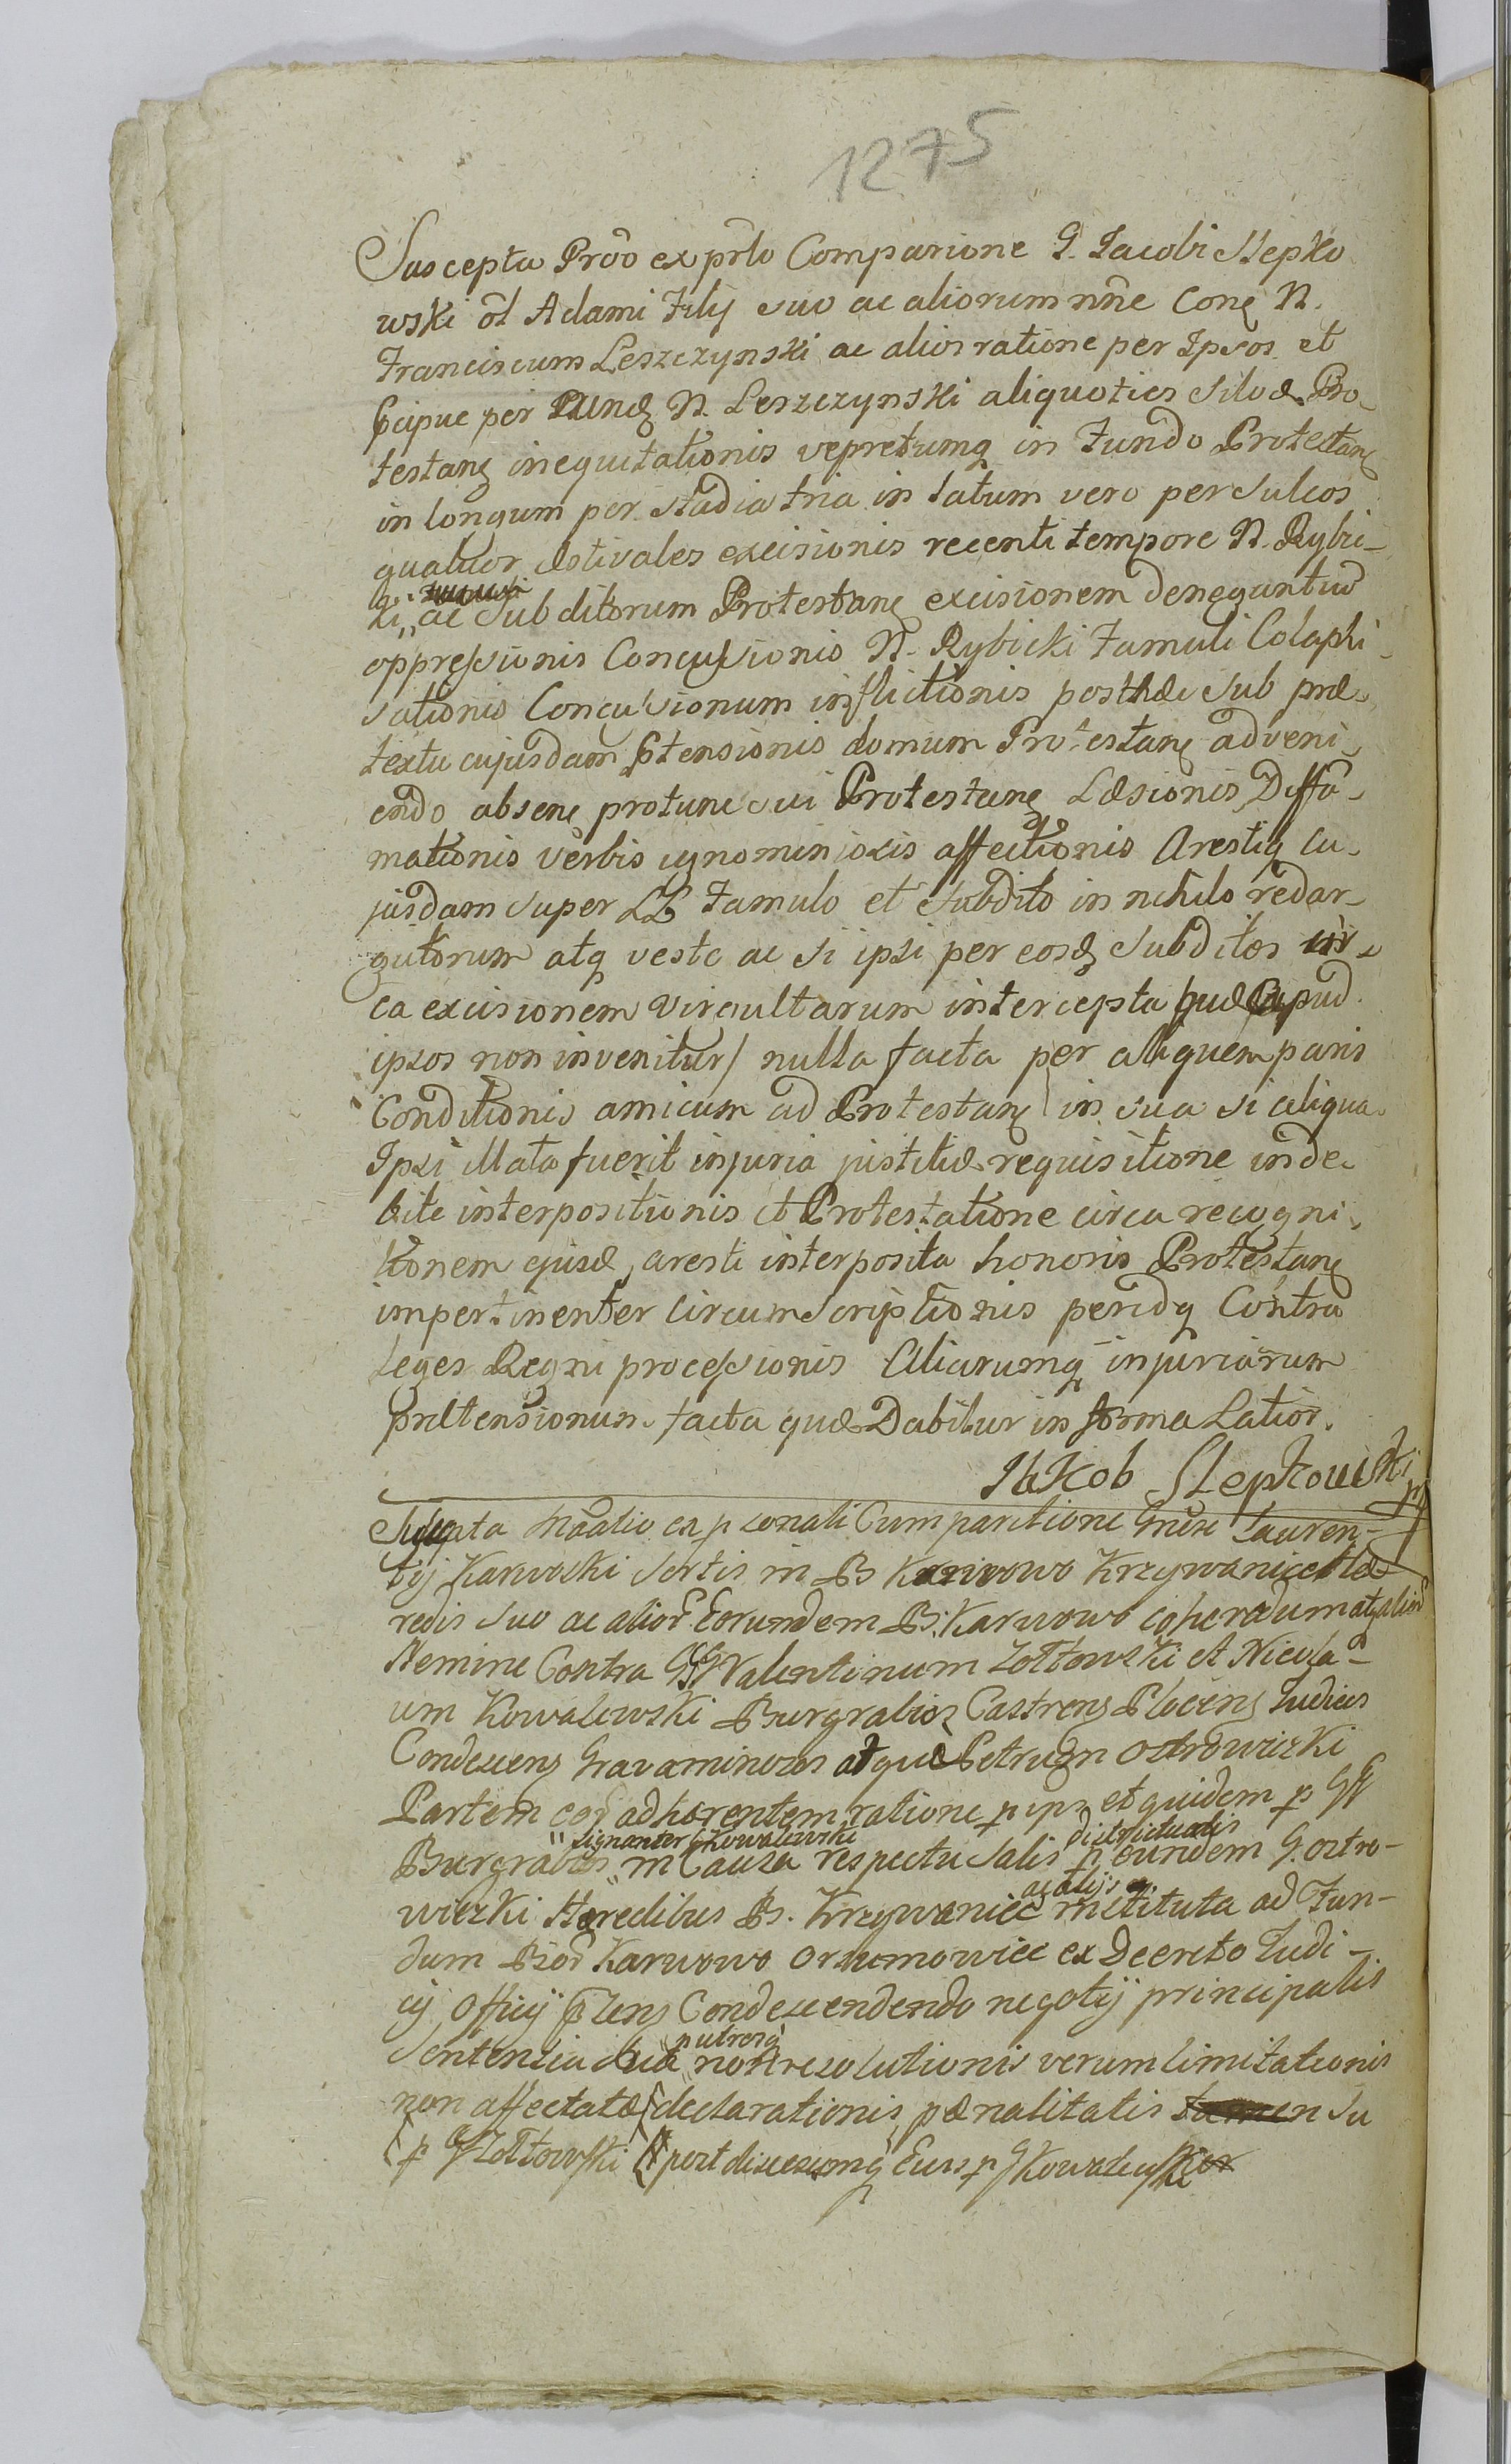 1275
Suscepta Proō ex prlo Comparione G. Jacobi Slepko
wski ol Adami Filij suo ac aliorum nne Cone N.
Franciscum Leszczynski ac alios ratione per Ipsos et
pcipue per Eund N. Leszczynski aliquoties Silvæ Pro-
testang inequitationis vepretumq in Fundo Protestang
in longum per stadia tria in latum vero per sulcos
quatuor æstivales excisionis recenti tempore N. Rybic-
ki ac Subditorum Protestang excisionem denegantium
oppressionis Concussionis N. Rybicki Famuli Colaphi-
sationis Concussionum inflictionis posthæc sub præ-
textu cujusdam Ptensionis domum Protestang adveni-
endo absene protunc sui Protestang Læsionis Diffa-
mationis verbis ignominiosis affectionis Arestiq cu-
jusdam super LL Famulo et Subdito in nihilo redar-
gutorum atq veste ac si ipsi per eosd Subditos cir-
ca excisionem Virgultarum intercepta /quæ apud
ipsos non invenitur/ nulla facta per aliquem paris
Conditionis amicum ad Protestang in sua si aliqua
Ipsi illata fuerit injuria justitiæ requisitione inde-
bite interpositionis et Protestatione circa recogni-
tionem ejusd aresti interposita honoris Protestang
impertinenter circumscriptionis peridq Contra
leges Regni processionis Aliarumq injuriarum
prætensionum facta quæ Dabitur in forma Latiori.
Jakob Slepkowski
mp
Suscepta ex psonali Comparitione Gnosi Lauren-
tij Karwoski Sortis in B Karwowo Krzywanice Hæ-
redis suo ac alior Eorundem B. Karwowo cohæredum atq alior
Nemine Contra GG Valentinum Zołtowski et Nicola-
um Kowalewski Burgrabios Castrens Plocens Judices
Condescens Gravaminosos atque Petrum Ostrowicki
Partem adhærentem ratione p ips et quidem p GG
signanter G Kowalewski districtualis
Burgrabios in Causa respectu Salis p eundem G. Ostro-
ac alijs
wicki Hæredibus B. Krzywanice instituta ad Fun-
dum Bnor Karwowo Orszymowice ex Decreto Judi-
cij Officij Plens Condescendendo negotij principalis
Sententia sua non resolutionis verum limitationis
non affectatæ declarationis pænalitatis su
p G Zołtowski post discessumq Eius p G Kowalewski